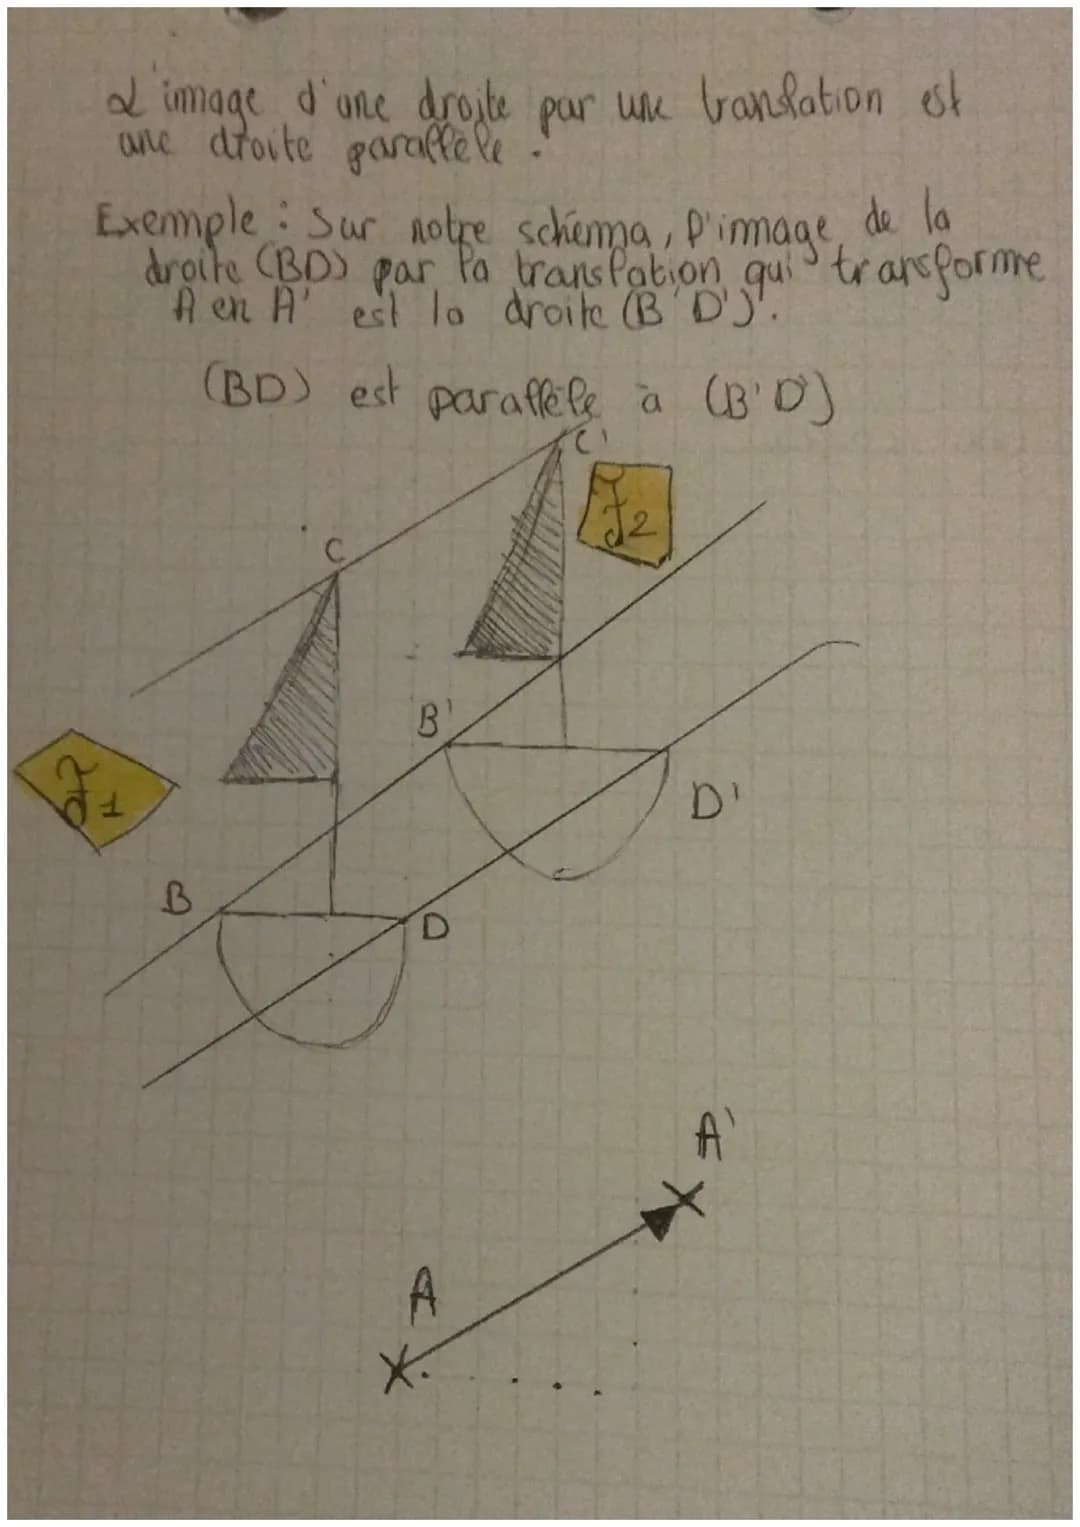 L'image d'une droite par une translation est
une droite parallèle.
Exemple : Sur notre schéma, l'image de la
droite (BD) par la translation qui transforme
A en A' est la droite (B'D').
(BD) est parallèle à (B'D')
C'
F2
C
B'
F1
D'
B
D
A'
A